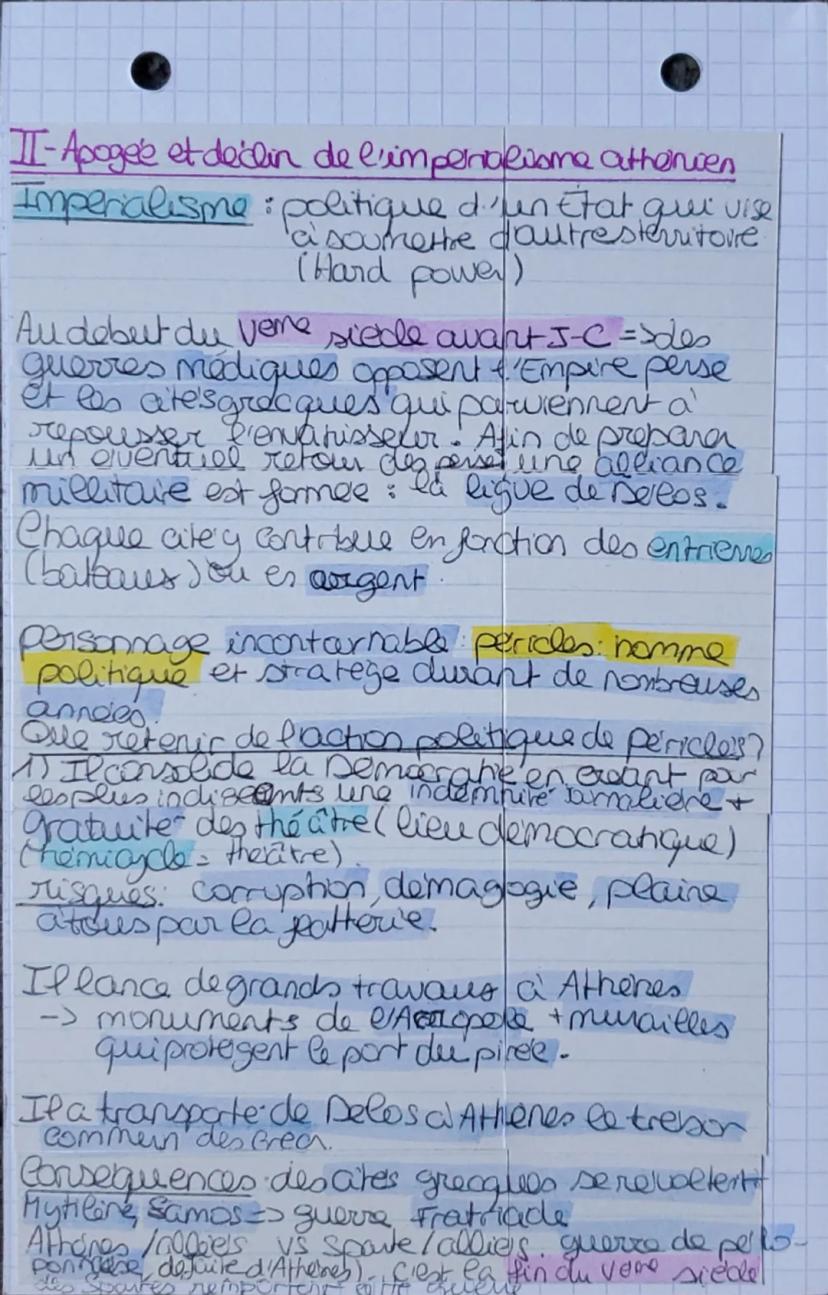 II- Apogée et déclin de l'imperialisme athénien
Imperialisme : politique d'un État qui vise
à soumettre d'autres territoire
(Hard power)
Au début du Veme siècle avant J-C => des
guerres médiques opposent l'Empire perse
et les cités grecques qui parviennent à
repousser l'envahisseur. Afin de préparer
un éventuel retour des perses une alliance
millitaire est formée : la ligue de Délos.
Chaque cité y contribue en fonction des
(bateaux) ou en argent.
personnage incontournable : périclès : homme
politique et stratège durant de nombreuses
années.
Que retenir de l'action politique de périclès?
1) Il consolide la Démocratie en créant par
les plus indigents une indemnité +
gratuité des théâtre (lieu démocratique)
(hémicycle = théâtre).
risques: corruption, démagogie, plaire
à tous par la flatterie.
Il lance de grands travaux à Athènes
-> monuments de l'Acropole + murailles
qui protègent le port du pirée.
Il a transporté de Délos à Athènes le trésor
commun des Grecs.
Conséquences: des cités grecques se révoltent
Mytilène, Samos => guerre fratricide
Athènes/alliés vs sparte/alliés. guerre de pélo-
ponnèse, défaite d'Athènes). c'est la fin du Veme siècle